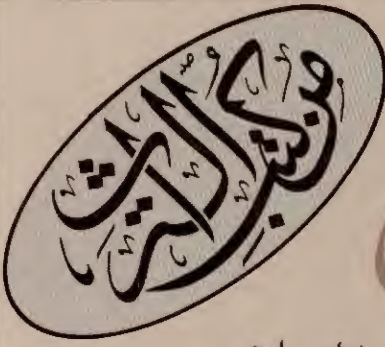 من كتب التراث